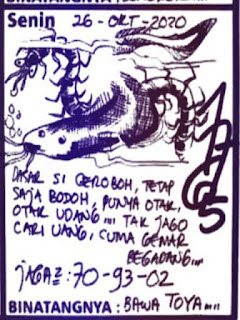 BINATANGNYA
Senin 26-OKT-2020
DASAR SI CEROBOH, TETAP
SAJA BODOH, PUNYA OTAK,
OTAK UDANG.... TAK JAGO
CARI UANG, CUMA GEMAR
BEGADANG....
JAGA2 : 70-93-02
BINATANGNYA : BAWA TOYA.....